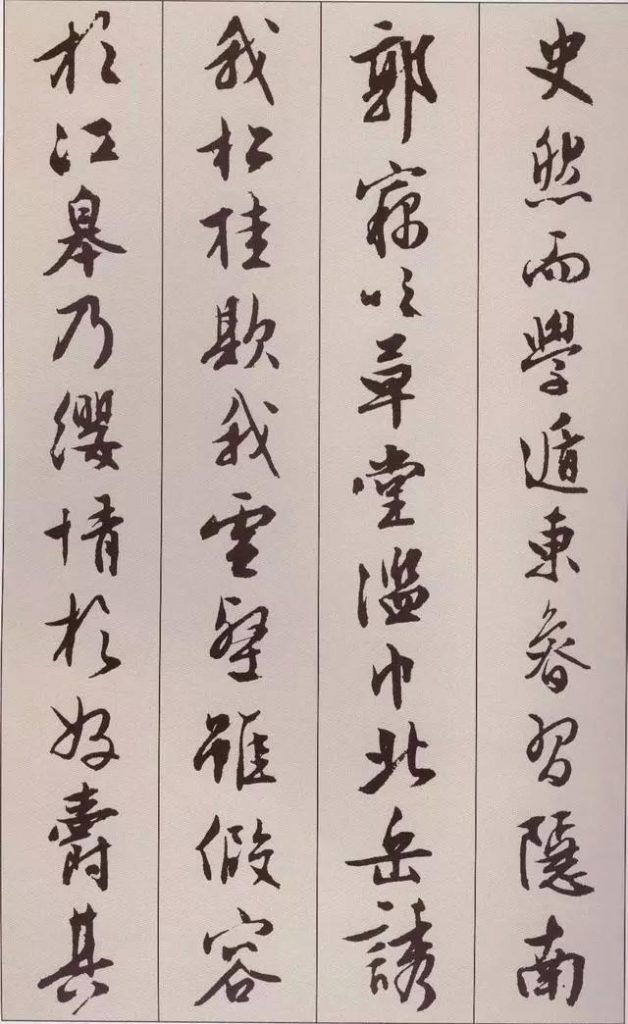 史然而學遁東魯習隱南
郭竊吹草堂濫巾北岳誘
我松桂欺我雲壑雖假容
於江皋乃纓情於好爵其